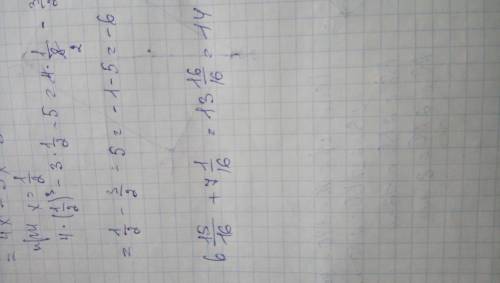 = 4x³ - 3x - 5
при x = 1/2
4·(1/2)³ - 3·1/2 - 5 = 4·1/8 - 3/2
= 1/2 - 3/2 - 5 = -1 - 5 = -6
6 15/16 + 7 1/16 = 13 16/16 = 14